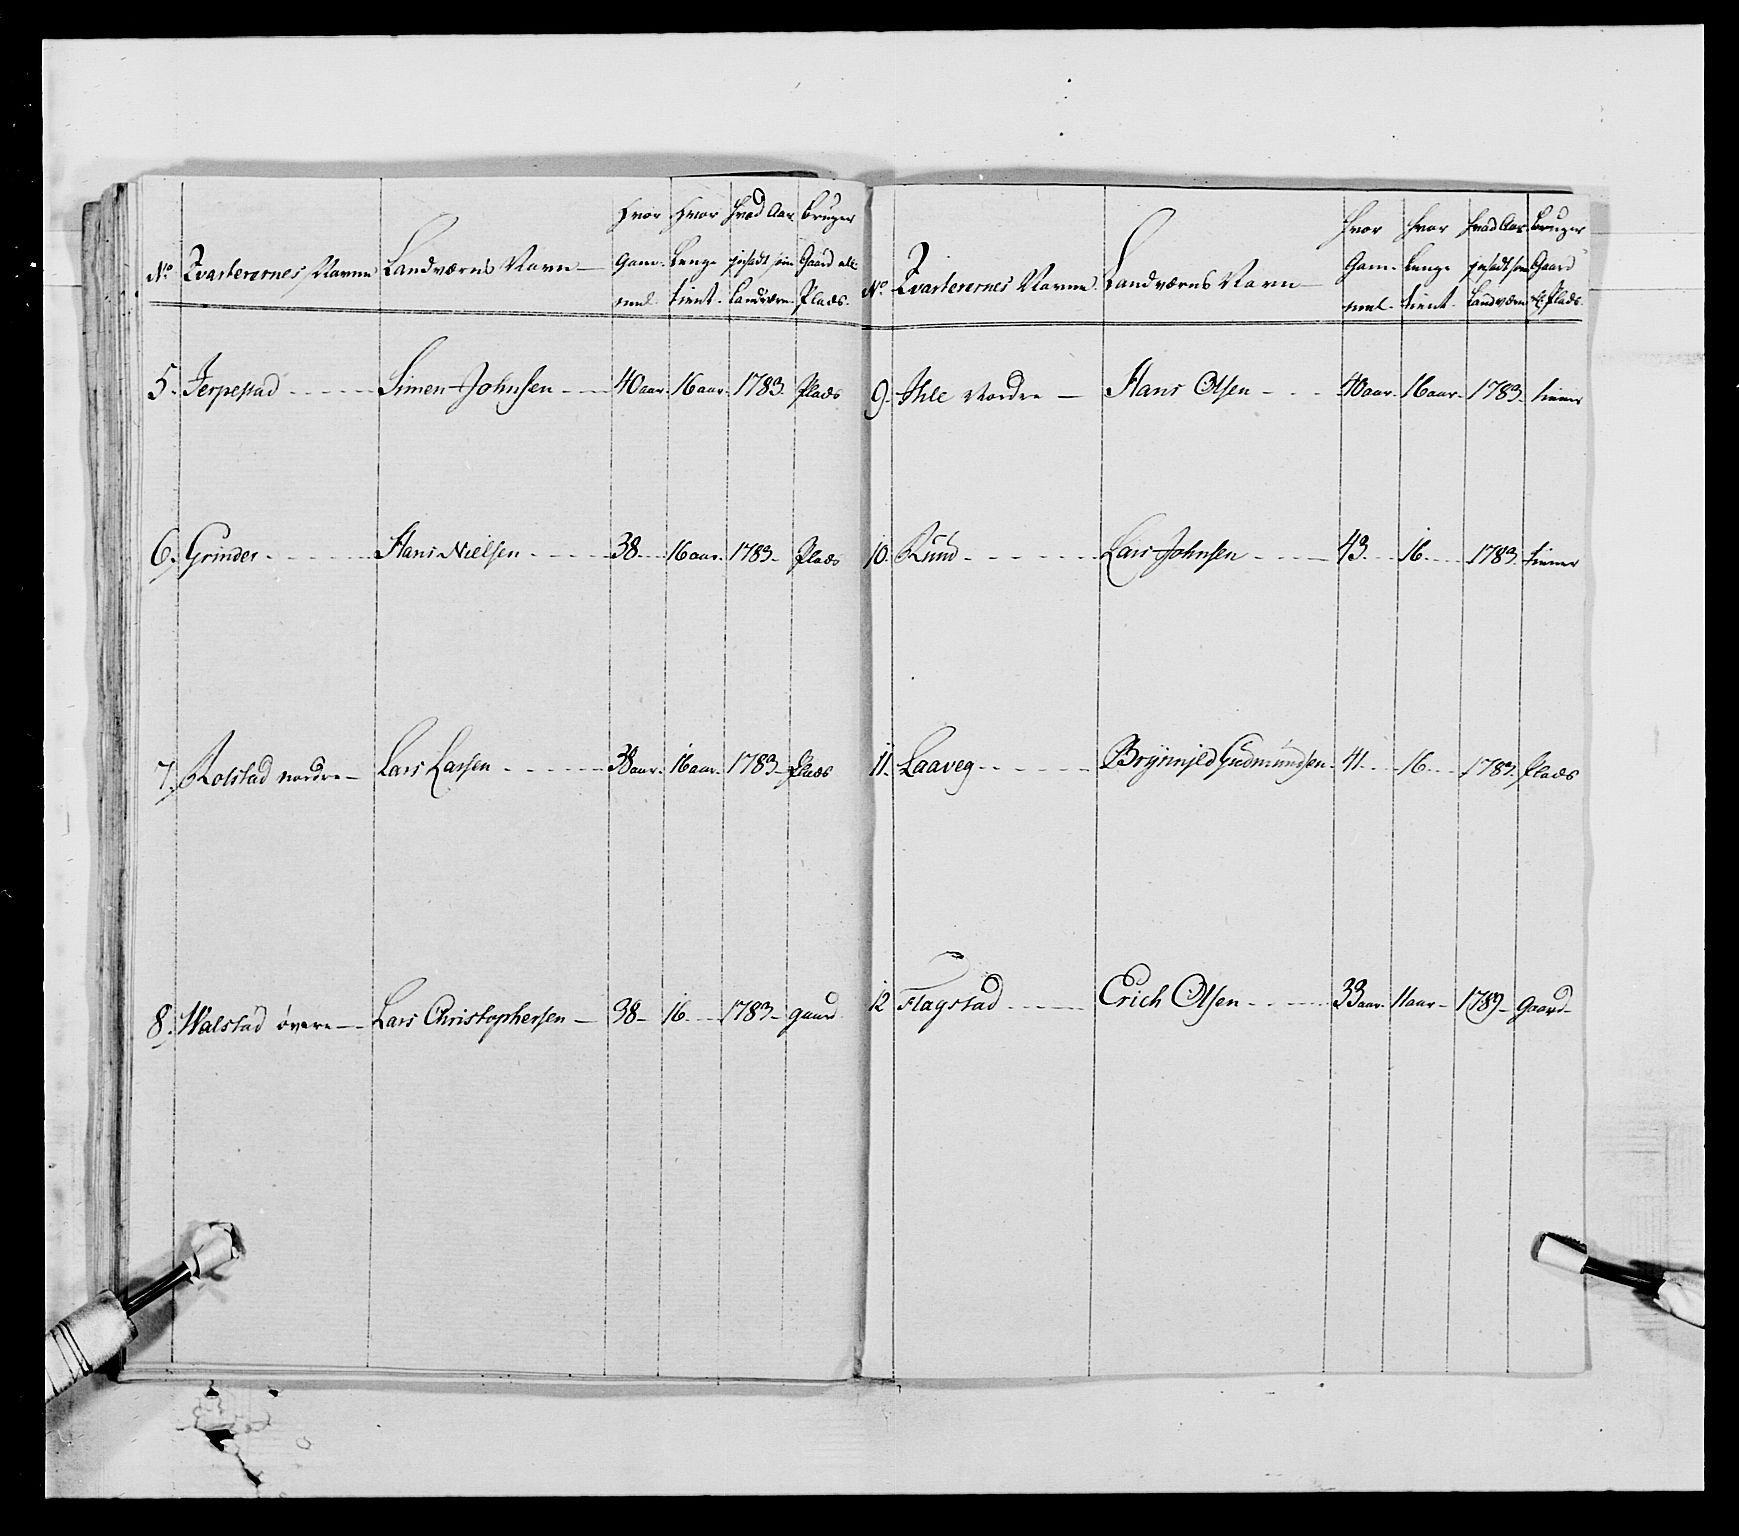 No Qvarterernes Navne Landværns Navn Hvor gam- mel Hvor Lenge tient Hvad Aar ansadt som Landværn Bruger Gaard ell. Plads
5. Jerpestad Simen Johnsen 40 aar. 16 aar. 1783. Plads
6. Grinder Hans Nielsen 38. 16 aar. 1783 Plads
7. Rolstad nordre Lars Larsen 38 aar. 16 aar. 1783 Plads
8. Walstad övere Lars Christophersen 38 16 1783 gaard
No Qvarterernes Navne Landværns Navn Hvor Gam- mel Hvor Lenge tient Hvad Aar ansadt som Landværn Bruger Gaard ell. Plads
9. Ihle Nordre Hans Olsen 40 aar. 16 aar. 1783. tiener
10. Rund Lars Johnsen 43. 16. 1783. tiener
11. Laaveg Gudmundsen 41. 16 1783. Plads
12 Flagstad Erich Olsen 33 aar. 11 aar 1789 Gaard